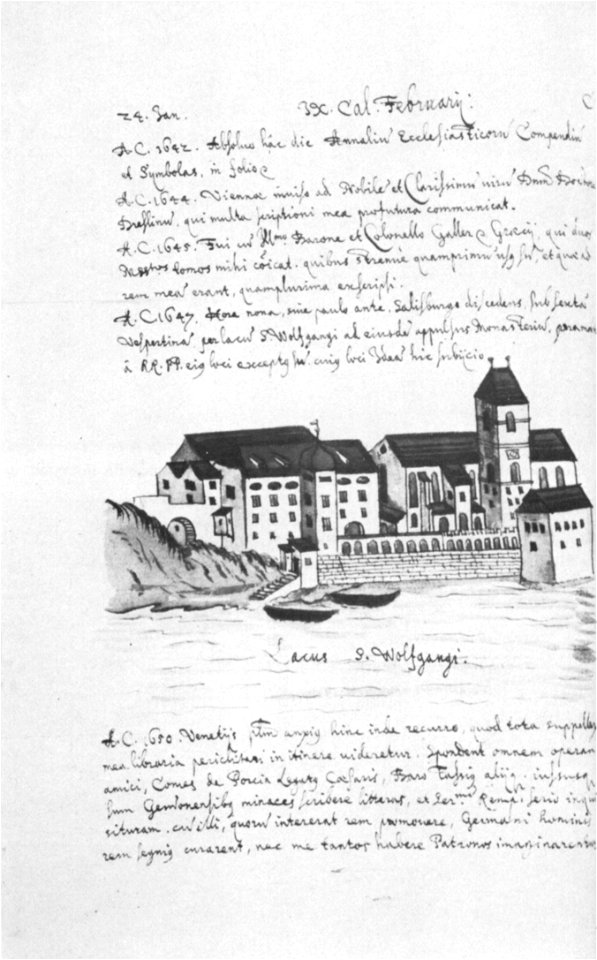 24. Jan. IX. Cal. Februarij:
A.C. 1642. Absoluo hac die Annaliu Ecclesiasticoru Compendiu
et Symbolas, in folio
A.C. 1644. Viennae inuiso ad Nobile et Clarissimu uiru Dnm Doctore
qui multa scriptioni mea profutura communicat.
A.C. 1645. Fui cu Barone et Colonello Galler Graecij, qui duos
tomos mihi coicat. quibus strenue quamprimu usq su, et quoad
rem mea erant, quamplurima exscripsi.
A.C. 1647. Hora nona, siue paulo ante, Salisburgo discedens, sub sexta
Vespertina, per lacu S. Wolfgangi ad eiusde appulsus Monasteriu,
à RR. PP. eig loci exceptg su. cuig loci Idea hic subijcio
Lacus S. Wolfgangi.
A.C. 1650. Venetijs anxig hinc inde recurro, quod tota suppellex
mea libraria periclitari in itinere uideretur. Spondent omnem operam
amici, Comes de Porcia Legatg Caesaris, Baro Tassig alijq.
sum minaces scribere litteras, et
cu illi, quoru intererat rem promouere, Germani hominis
rem segnig curarent, nec me tantos habere Patronos imaginarentur